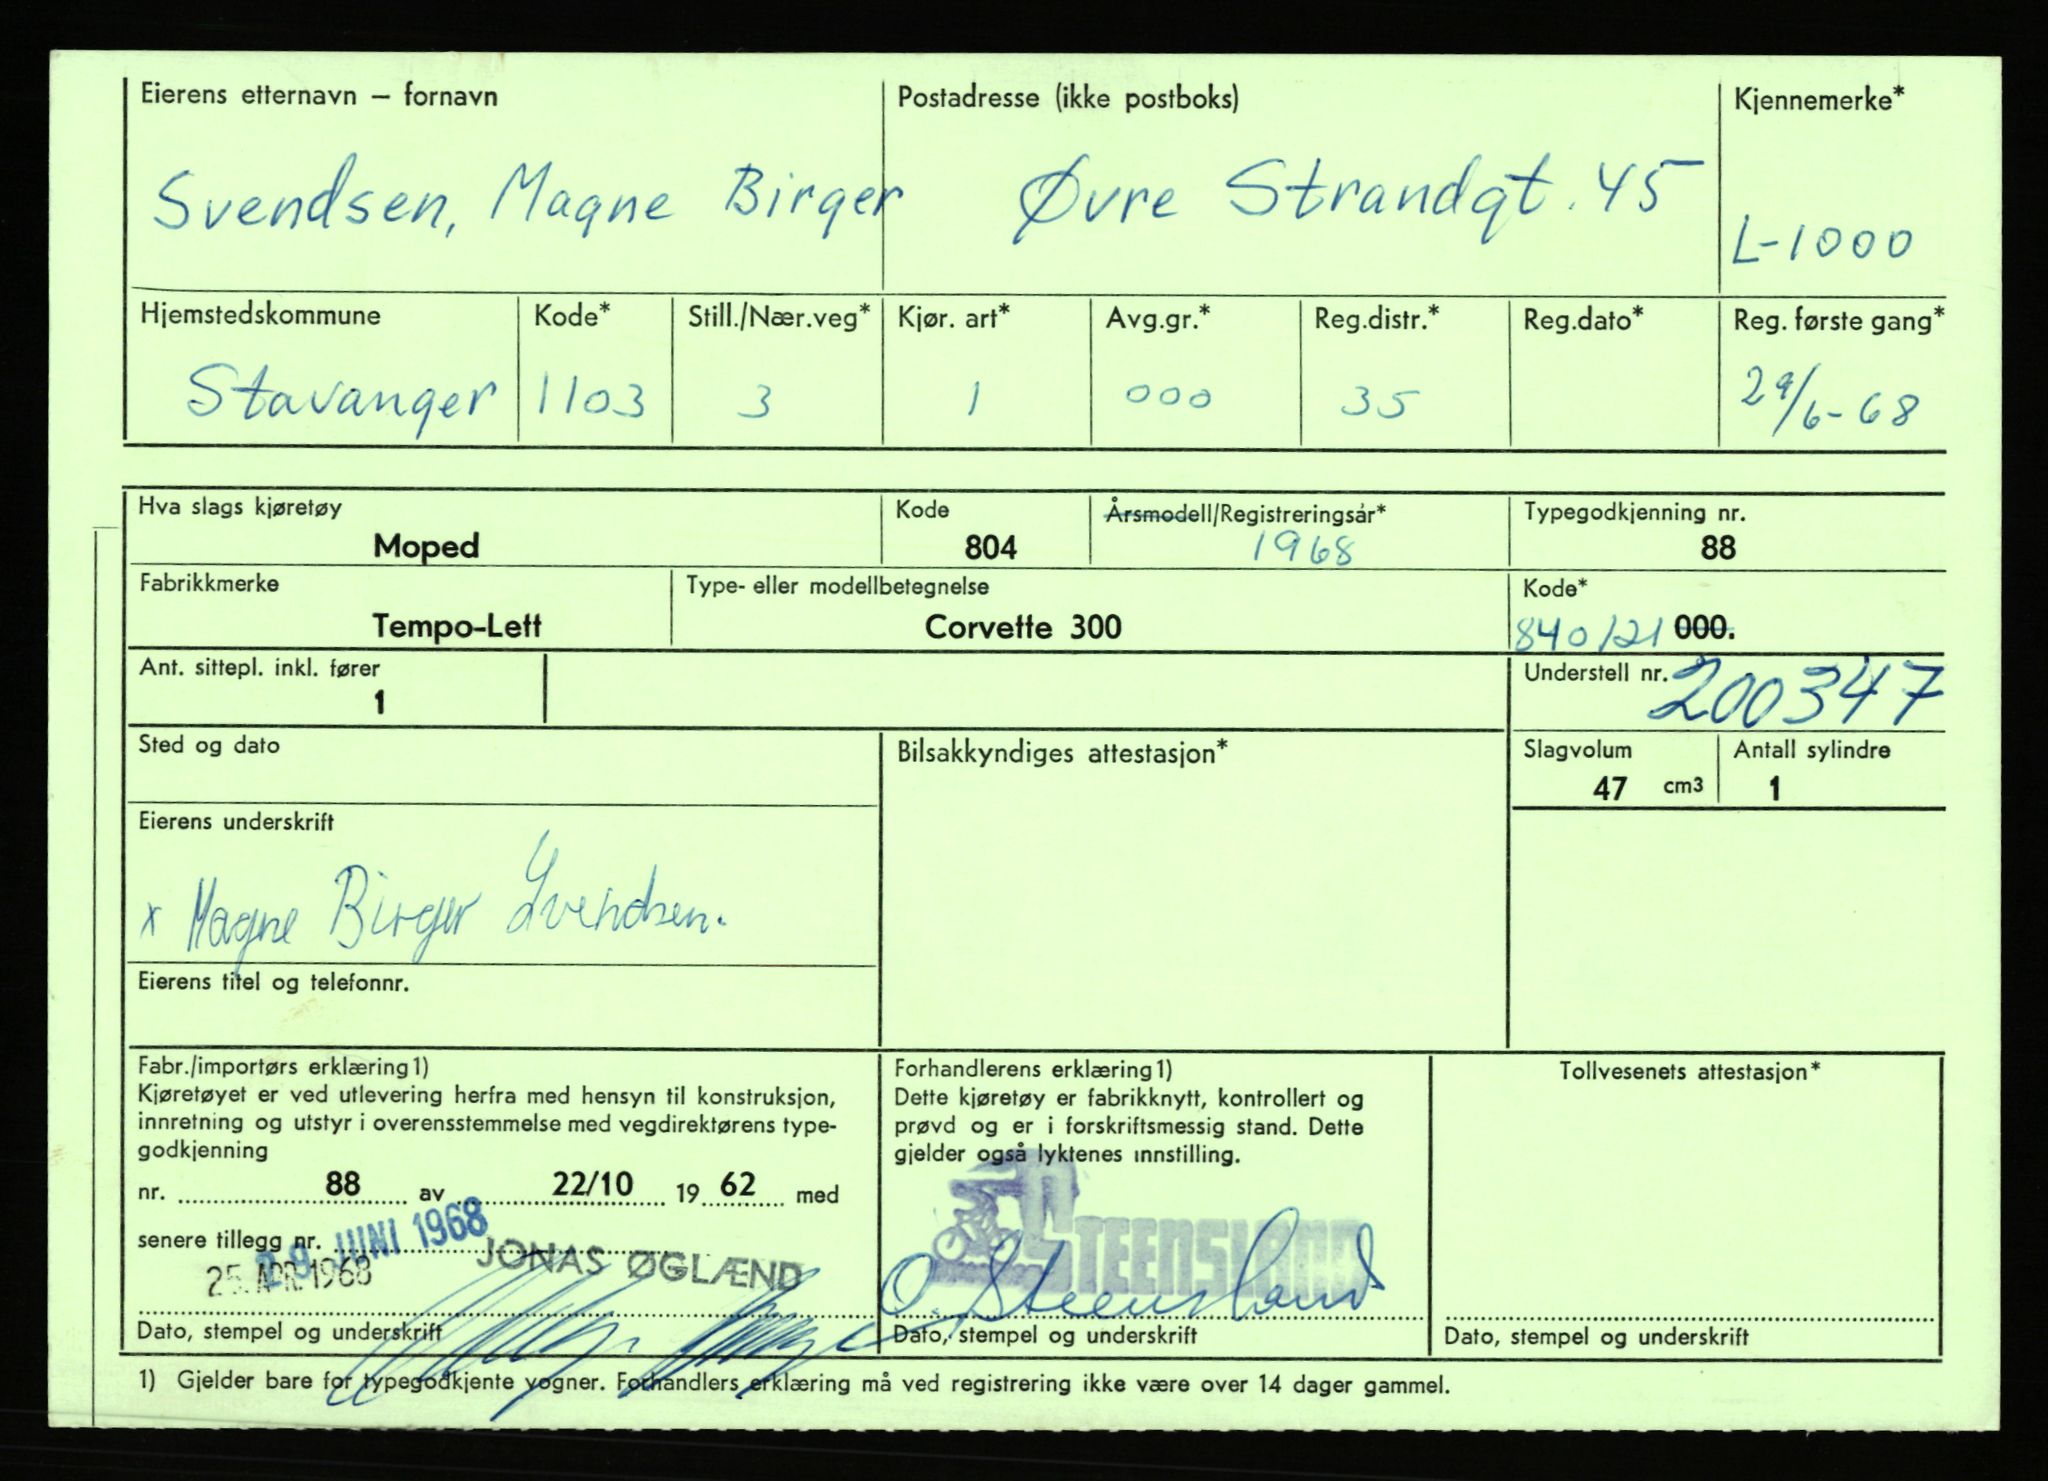 Eierens etternavn – fornavn
Svendsen, Magne Birger
Postadresse (ikke postboks)
Øvre Strandgt. 45
Kjennemerke*
L-1000
Hjemstedskommune
Stavanger
Kode*
1103
Still./Nær.veg*
3
Kjør. art*
1
Avg.gr.*
000
Reg.distr.*
35
Reg.dato*
Reg. første gang*
29/6-68
Hva slags kjøretøy
Moped
Kode
804
Årsmodell/Registreringsår*
1968
Typegodkjenning nr.
88
Fabrikkmerke
Tempo-Lett
Type- eller modellbetegnelse
Corvette 300
Kode*
840121 000.
Ant. sittepl. inkl. fører
1
Understell nr.
200347
Sted og dato
Bilsakkyndiges attestasjon*
Slagvolum
47 cm3
Antall sylindre
1
Eierens underskrift
x Magne Birger Svendsen.
Eierens titel og telefonnr.
Fabr./importørs erklæring 1)
Kjøretøyet er ved utlevering herfra med hensyn til konstruksjon,
innretning og utstyr i overensstemmelse med vegdirektørens type-
godkjenning
nr. 88 av 22/10 19 62 med
senere tillegg nr.
29 JUNI 1968
25. APR. 1968
JONAS ØGLÆND
Dato, stempel og underskrift
Forhandlerens erklæring 1)
Dette kjøretøy er fabrikknytt, kontrollert og
prøvd og er i forskriftsmessig stand. Dette
gjelder også lyktenes innstilling.
STEENSLAND
O. Steensland
Dato, stempel og underskrift
Tollvesenets attestasjon*
Dato, stempel og underskrift
1) Gjelder bare for typegodkjente vogner. Forhandlers erklæring må ved registrering ikke være over 14 dager gammel.